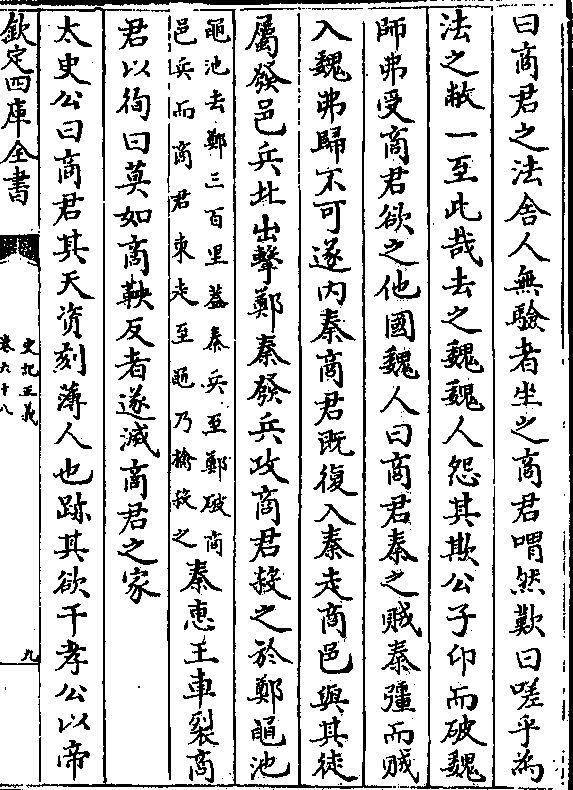 曰商君之法舍人無驗者坐之商君喟然歎曰嗟乎為
法之敝一至此哉去之魏魏人怨其欺公子卬而破魏
師弗受商君欲之他國魏人曰商君秦之賊秦彊而賊
入魏弗歸不可遂内秦商君既復入秦走商邑與其徒
屬發邑兵北出擊鄭秦發兵攻商君殺之於鄭黽池
黽池去鄭三百里蓋秦兵至鄭破商
邑兵而商君東走至黽乃擒殺之
秦惠王車裂商
君以徇曰莫如商鞅反者遂滅商君之家
太史公曰商君其天資刻薄人也跡其欲干孝公以帝
欽定四庫全書
史記正義
卷六十八
九